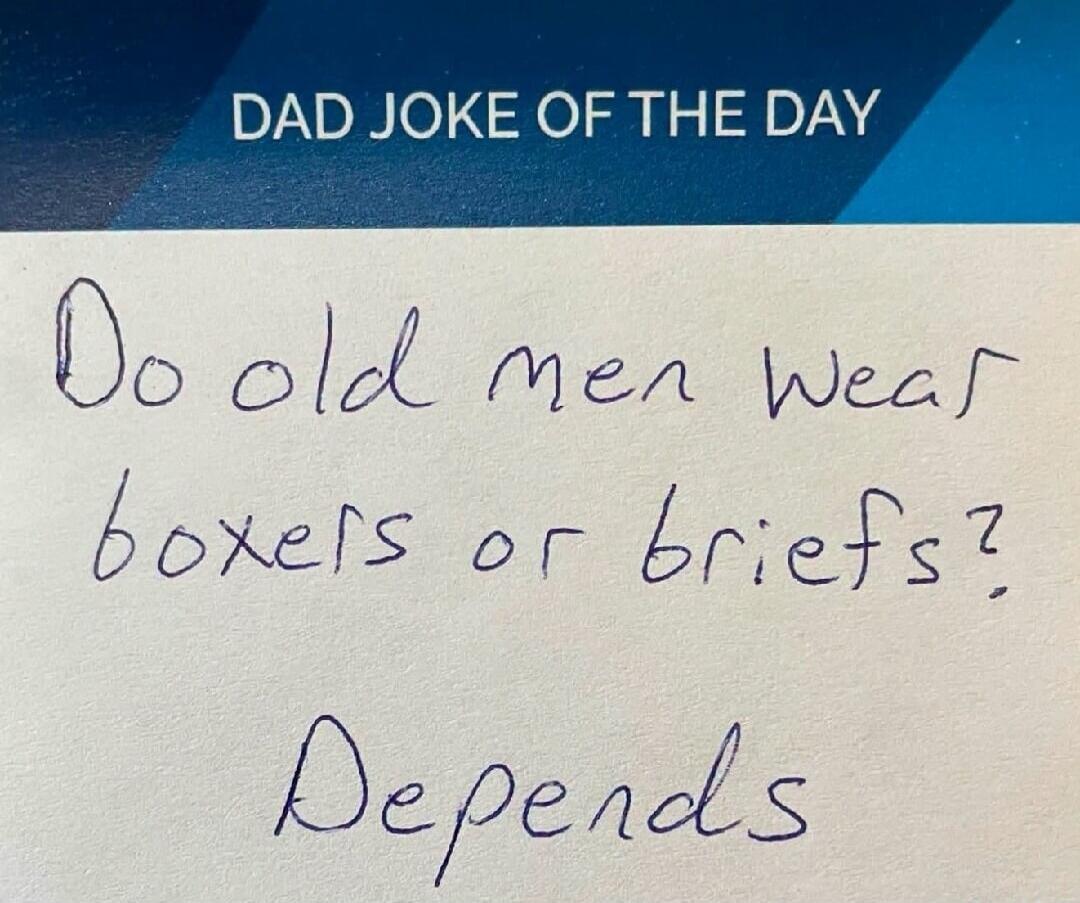 DAD JOKE OF THE DAY
Do old men wear
boxers or briefs?
Depends